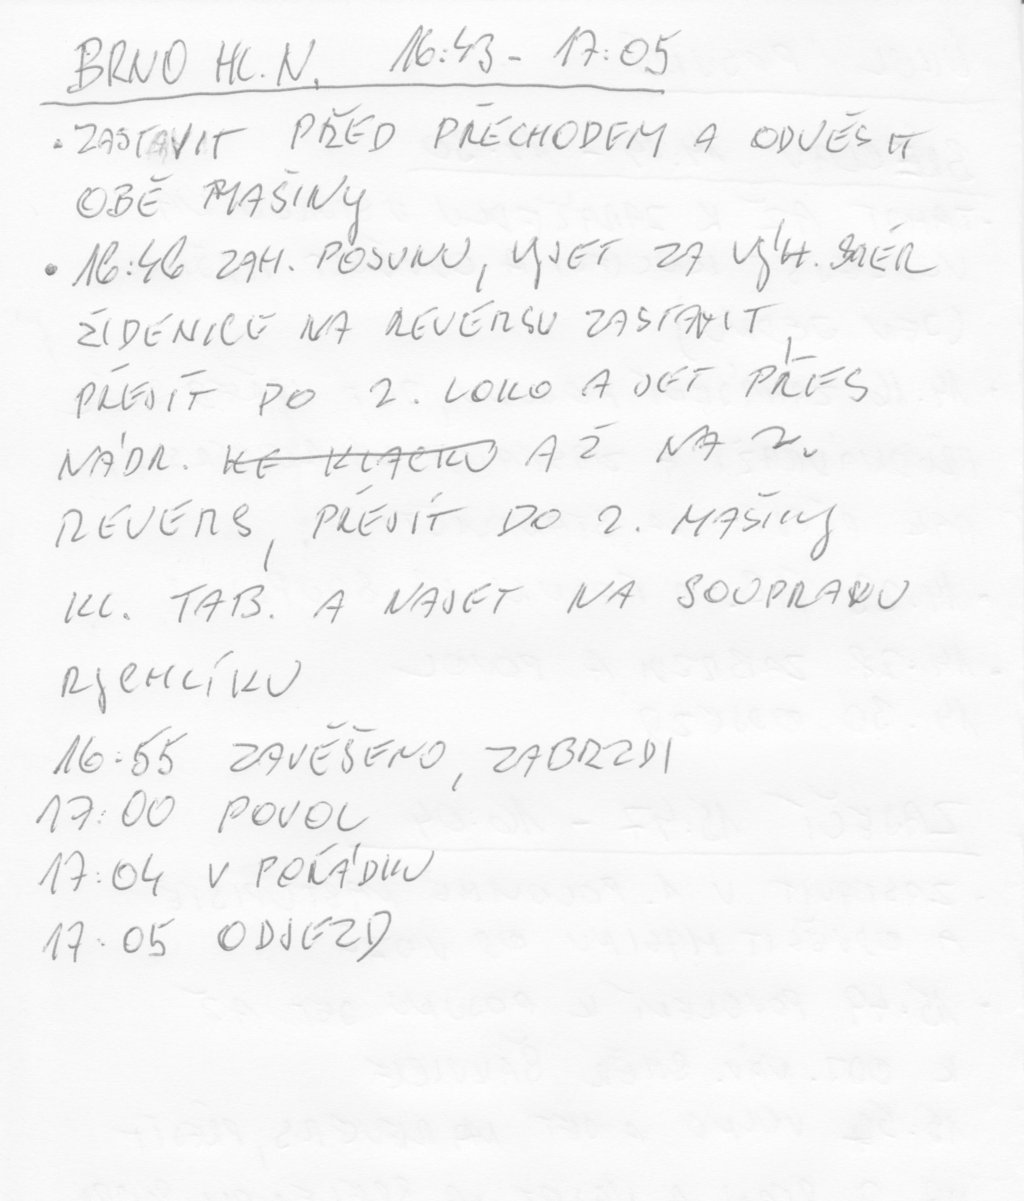 BRNO HL. N. 16:43 - 17:05
• ZASTAVIT PŘED PŘECHODEM A ODVĚSIT
OBĚ MAŠINY
• 16:46 ZAH. POSUNU, VYJET ZA VÝH. SMĚR
ŽIDENICE NA REVERSU ZASTAVIT
PŘEJÍT DO 2. LOKO A JET PŘES
NÁDR. KE KLACKU AŽ NA 2.
REVERS, PŘEJÍT DO 2. MAŠINY
KL. TAB. A NAJET NA SOUPRAVU
RYCHLÍKU
16:55 ZAVĚŠENO, ZABRZDI
17:00 POVOL
17:04 V POŘÁDKU
17:05 ODJEZD